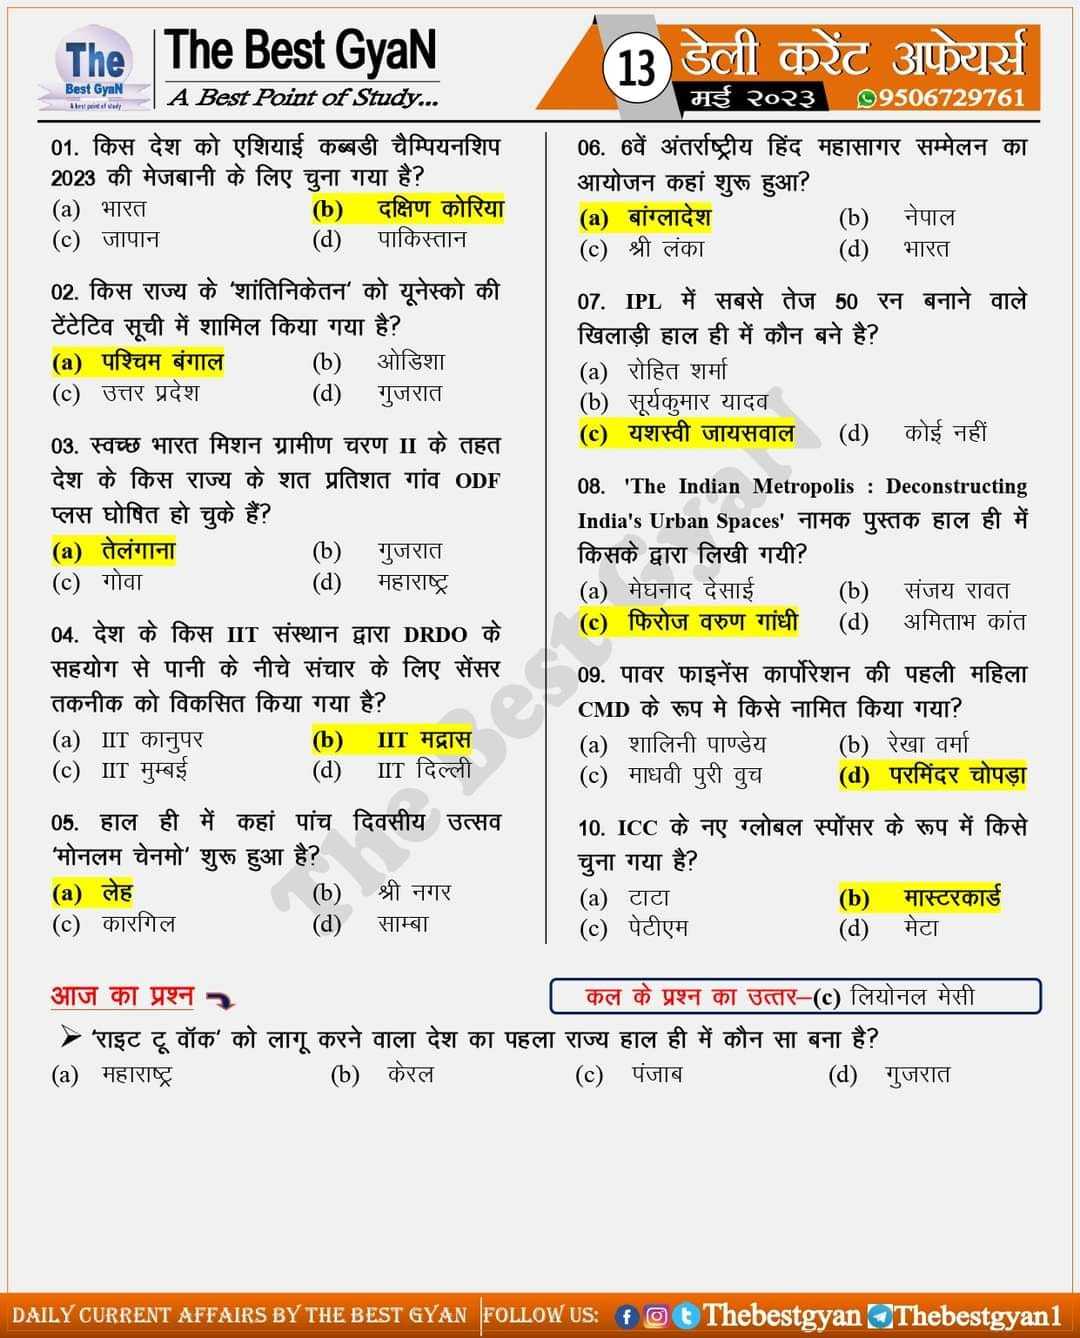 The
Best GyaN
A best point of study
The Best GyaN
A Best Point of Study...
13
डेली करेंट अफेयर्स
मई २०२३
9506729761
01. किस देश को एशियाई कब्बडी चैम्पियनशिप
2023 की मेजबानी के लिए चुना गया है?
(a) भारत (b) दक्षिण कोरिया
(c) जापान (d) पाकिस्तान
02. किस राज्य के 'शांतिनिकेतन' को यूनेस्को की
टेंटेटिव सूची में शामिल किया गया है?
(a) पश्चिम बंगाल (b) ओडिशा
(c) उत्तर प्रदेश (d) गुजरात
03. स्वच्छ भारत मिशन ग्रामीण चरण II के तहत
देश के किस राज्य के शत प्रतिशत गांव ODF
प्लस घोषित हो चुके हैं?
(a) तेलंगाना (b) गुजरात
(c) गोवा (d) महाराष्ट्र
04. देश के किस IIT संस्थान द्वारा DRDO के
सहयोग से पानी के नीचे संचार के लिए सेंसर
तकनीक को विकसित किया गया है?
(a) IIT कानुपर (b) IIT मद्रास
(c) IIT मुम्बई (d) IIT दिल्ली
05. हाल ही में कहां पांच दिवसीय उत्सव
'मोनलम चेनमो' शुरू हुआ है?
(a) लेह (b) श्री नगर
(c) कारगिल (d) साम्बा
06. 6वें अंतर्राष्ट्रीय हिंद महासागर सम्मेलन का
आयोजन कहां शुरू हुआ?
(a) बांग्लादेश (b) नेपाल
(c) श्री लंका (d) भारत
07. IPL में सबसे तेज 50 रन बनाने वाले
खिलाड़ी हाल ही में कौन बने है?
(a) रोहित शर्मा
(b) सूर्यकुमार यादव
(c) यशस्वी जायसवाल (d) कोई नहीं
08. 'The Indian Metropolis : Deconstructing
India's Urban Spaces' नामक पुस्तक हाल ही में
किसके द्वारा लिखी गयी?
(a) मेघनाद देसाई (b) संजय रावत
(c) फिरोज वरुण गांधी (d) अमिताभ कांत
09. पावर फाइनेंस कार्पोरेशन की पहली महिला
CMD के रूप मे किसे नामित किया गया?
(a) शालिनी पाण्डेय (b) रेखा वर्मा
(c) माधवी पुरी वुच (d) परमिंदर चोपड़ा
10. ICC के नए ग्लोबल स्पोंसर के रूप में किसे
चुना गया है?
(a) टाटा (b) मास्टरकार्ड
(c) पेटीएम (d) मेटा
The Best GyaN
आज का प्रश्न
कल के प्रश्न का उत्तर–(c) लियोनल मेसी
➢ 'राइट टू वॉक' को लागू करने वाला देश का पहला राज्य हाल ही में कौन सा बना है?
(a) महाराष्ट्र (b) केरल (c) पंजाब (d) गुजरात
DAILY CURRENT AFFAIRS BY THE BEST GYAN FOLLOW US: Thebestgyan Thebestgyan1